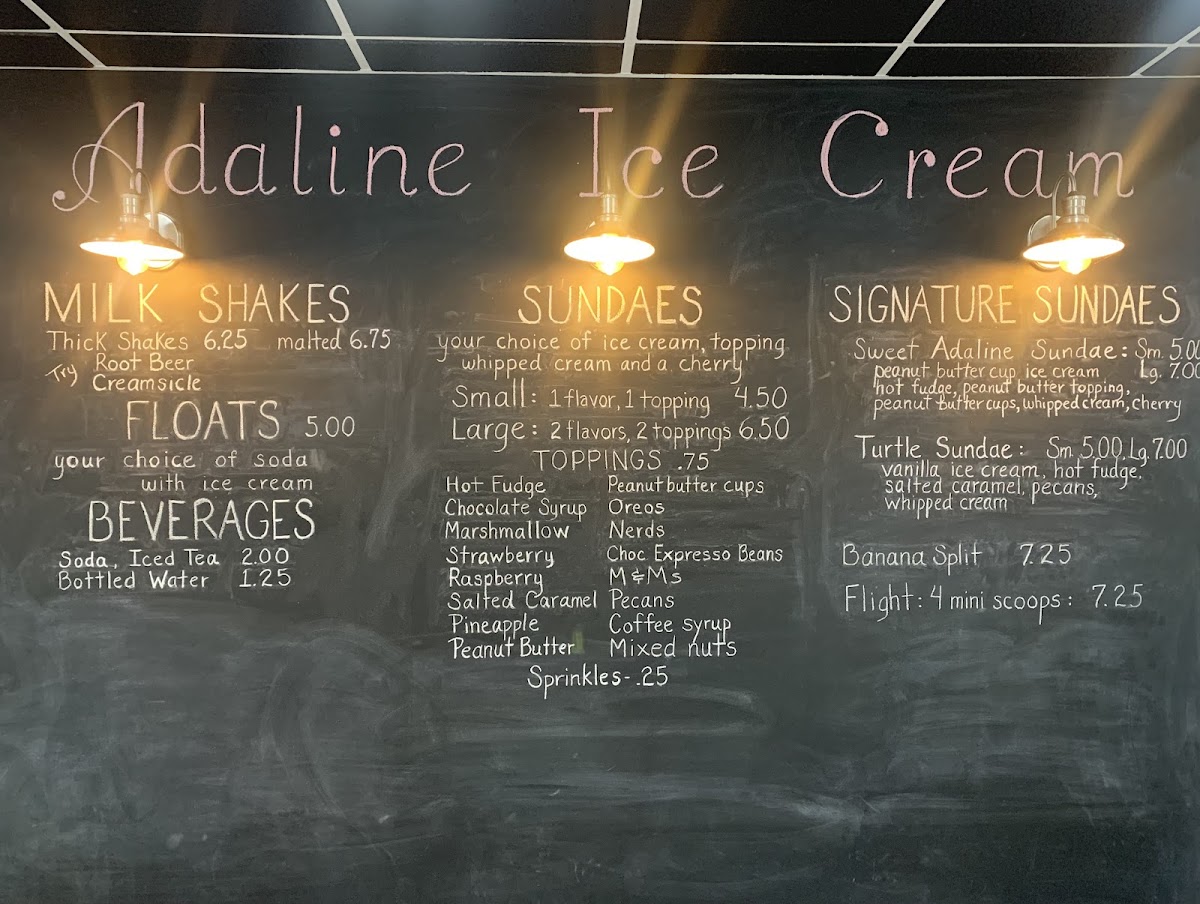 Adaline Ice Cream
MILK SHAKES
Thick Shakes 6.25 malted 6.75
Try Root Beer
Creamsicle
FLOATS 5.00
your choice of soda
with ice cream
BEVERAGES
Soda, Iced Tea 2.00
Bottled Water 1.25
SUNDAES
your choice of ice cream, topping
whipped cream and a cherry
Small: 1 flavor, 1 topping 4.50
Large: 2 flavors, 2 toppings 6.50
TOPPINGS .75
Hot Fudge Peanut butter cups
Chocolate Syrup Oreos
Marshmallow Nerds
Strawberry Choc. Expresso Beans
Raspberry M&Ms
Salted Caramel Pecans
Pineapple Coffee syrup
Peanut Butter Mixed nuts
Sprinkles- .25
SIGNATURE SUNDAES
Sweet Adaline Sundae: Sm. 5.00
peanut butter cup ice cream Lg. 7.00
hot fudge, peanut butter topping,
peanut butter cups, whipped cream, cherry
Turtle Sundae: Sm 5.00, Lg. 7.00
vanilla ice cream, hot fudge,
salted caramel, pecans,
whipped cream
Banana Split 7.25
Flight: 4 mini scoops: 7.25